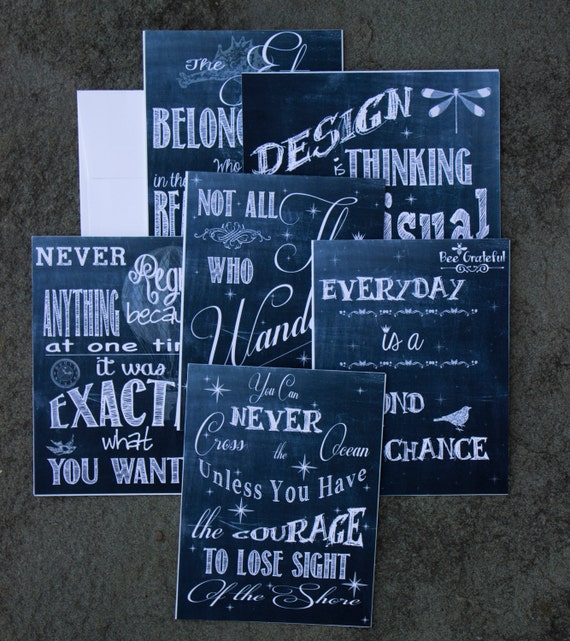 The
BELONG
Who
in the
BE
DESIGN
is THINKING
isual
NOT ALL
WHO
Wand
NEVER
Regr
ANYTHING becau
at one tim
it was
EXACT
what
YOU WANT
Bee Grateful
EVERYDAY
is a
OND
CHANCE
You Can
NEVER
Cross the Ocean
Unless You Have
the COURAGE
TO LOSE SIGHT
Of the Shore